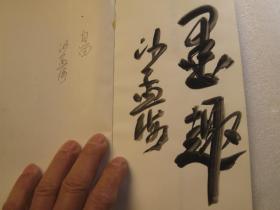 墨趣
沙孟海
沙孟海